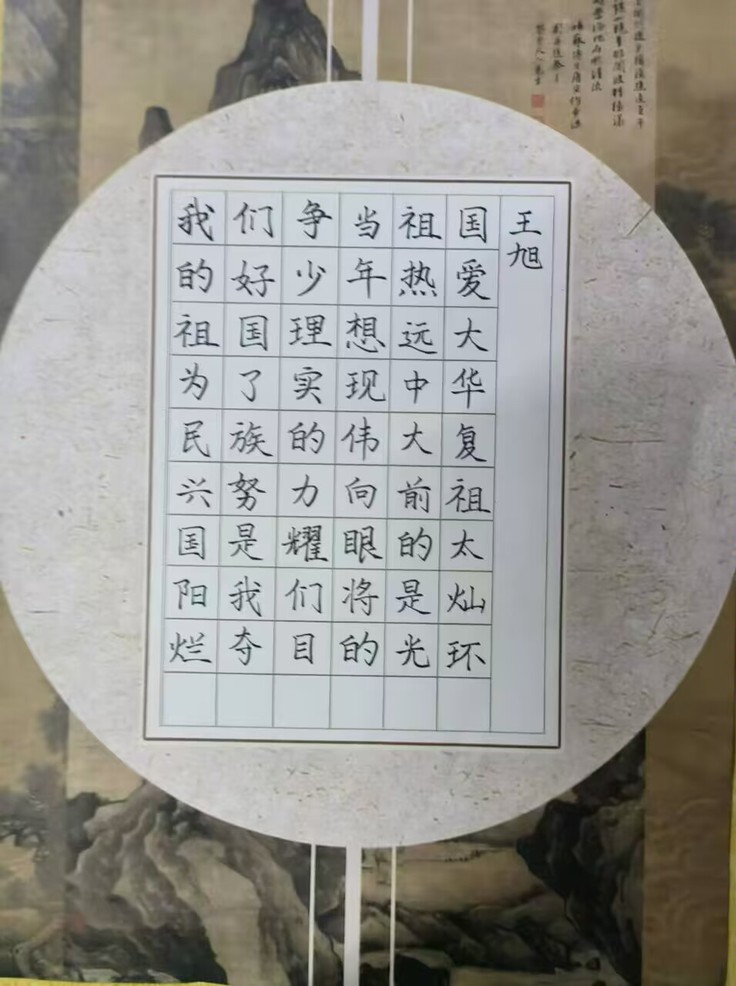 我们争当祖国
的好少年热爱
祖国理想远大
为了实现中华
民族的伟大复
兴努力向前祖
国是耀眼的太
阳我们将是灿
烂夺目的光环
王旭